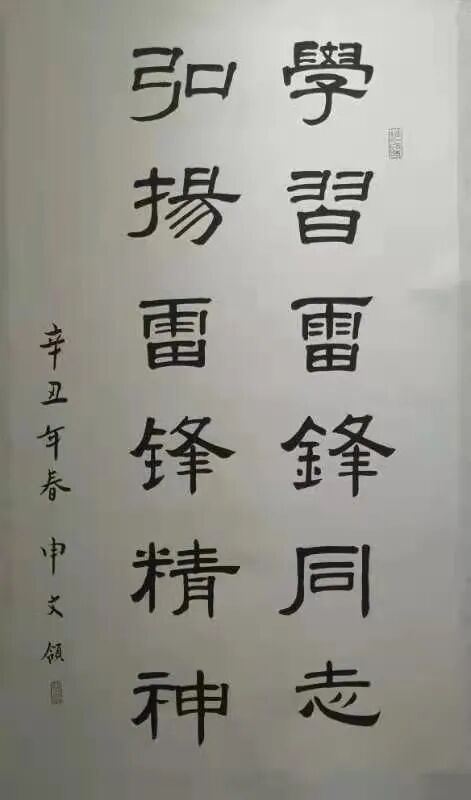 學習雷鋒同志
弘揚雷锋精神
辛丑年春 申文領